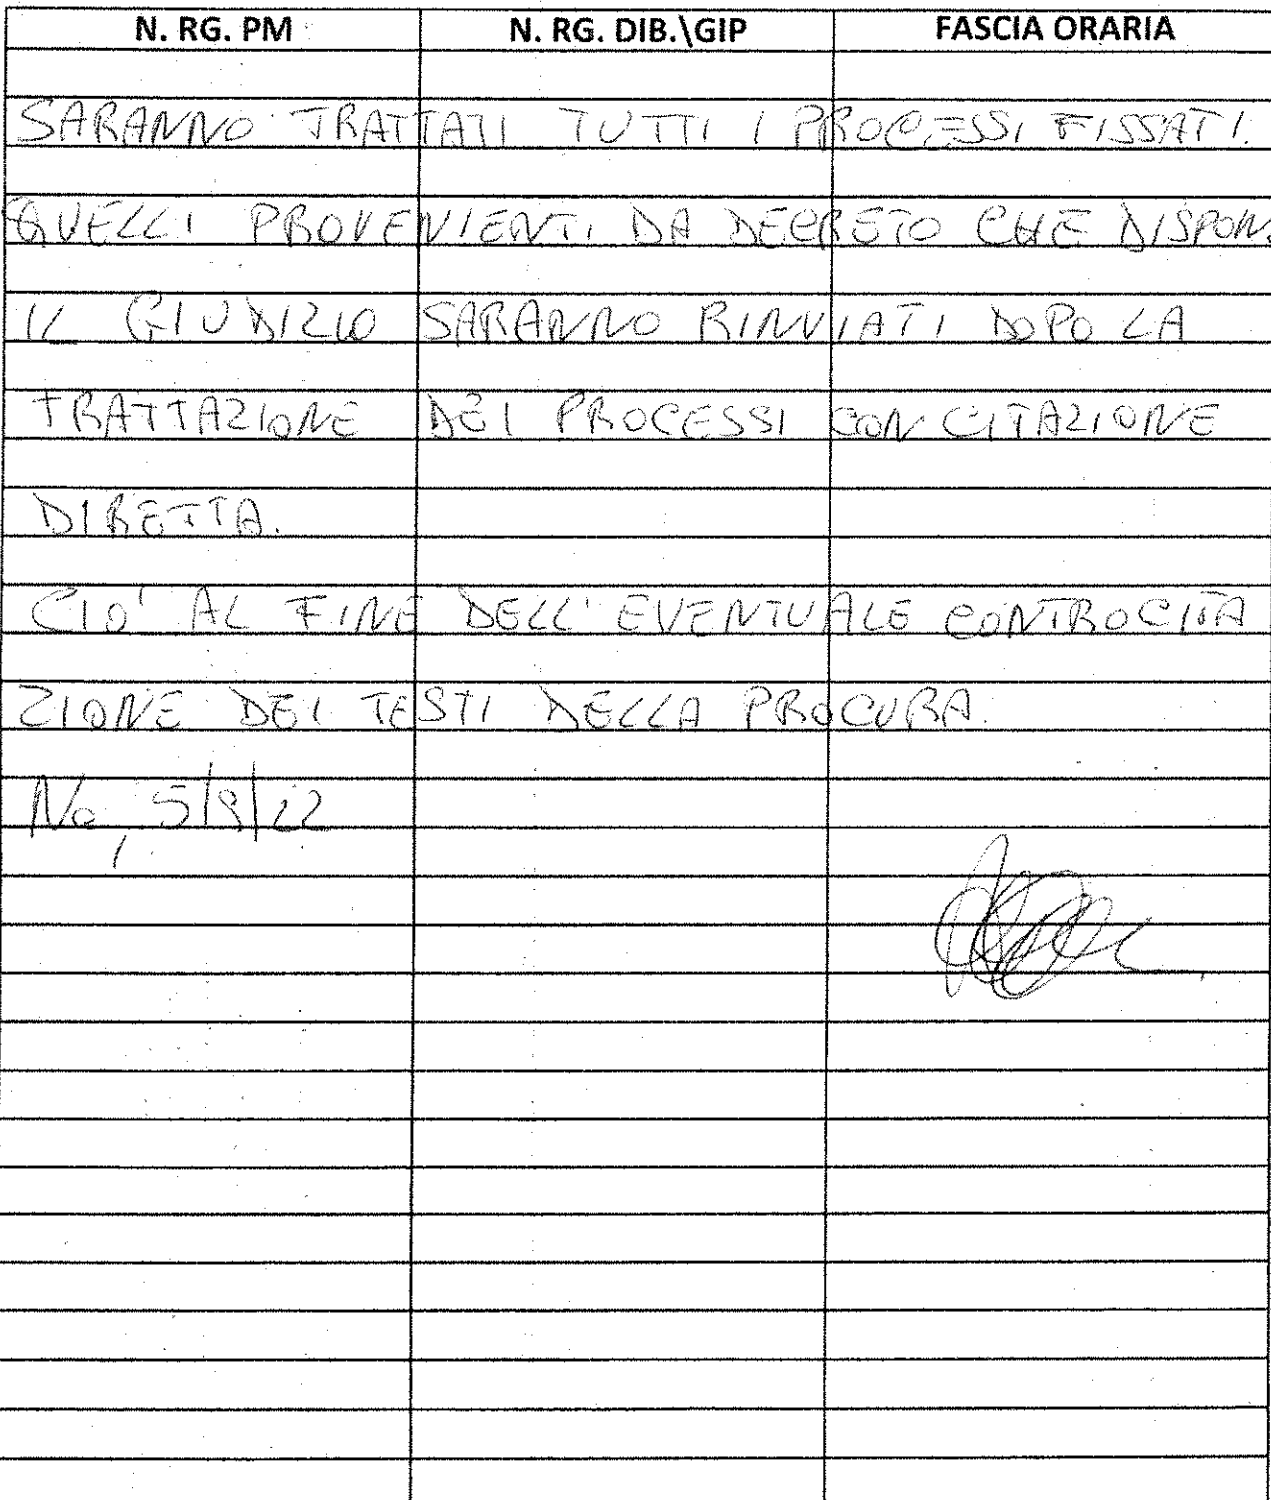 N. RG. PM N. RG. DIB.\GIP FASCIA ORARIA
SARANNO TRATTATI TUTTI I PROCESSI FISSATI.
QUELLI PROVENIENTI DA DECRETO CHE DISPON
IL GIUDIZIO SARANNO RINVIATI DOPO LA
TRATTAZIONE DEI PROCESSI CON CITAZIONE
DIRETTA.
CIO' AL FINE DELL'EVENTUALE CONTROCITA
ZIONE DEI TESTI DELLA PROCURA.
Na, 5/9/22